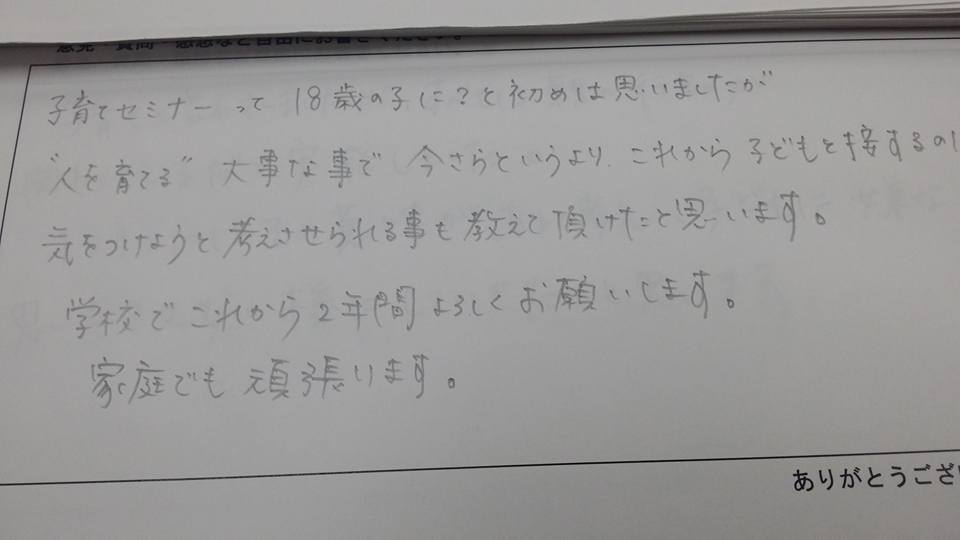 意見・質問・感想など自由にお書きください。
子育てセミナーって 18歳の子に?と初めは思いましたが
"人を育てる" 大事な事で 今さらというより、これから 子どもと接するのに
気をつけようと 考えさせられる事も 教えて頂けたと思います。
学校で これから 2年間 よろしく お願いします。
家庭でも 頑張ります。
ありがとうござい